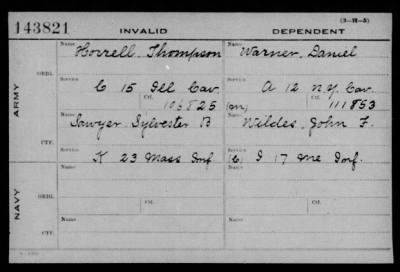 143821 INVALID DEPENDENT (3-11-5)
ARMY ORIG. Name Horrell, Thompson Name Warner, Daniel
Service C 15 Ill Cav. Service A 12 N.Y. Cav.
Ctf. 106825 (on) Ctf. 111853
CTF. Name Sawyer, Sylvester B Name Wildes, John F.
Service K 23 Mass Inf (C) Service I 17 Me Inf.
NAVY ORIG. Name Name
Service Service
Ctf. Ctf.
CTF. Name Name
Service Service